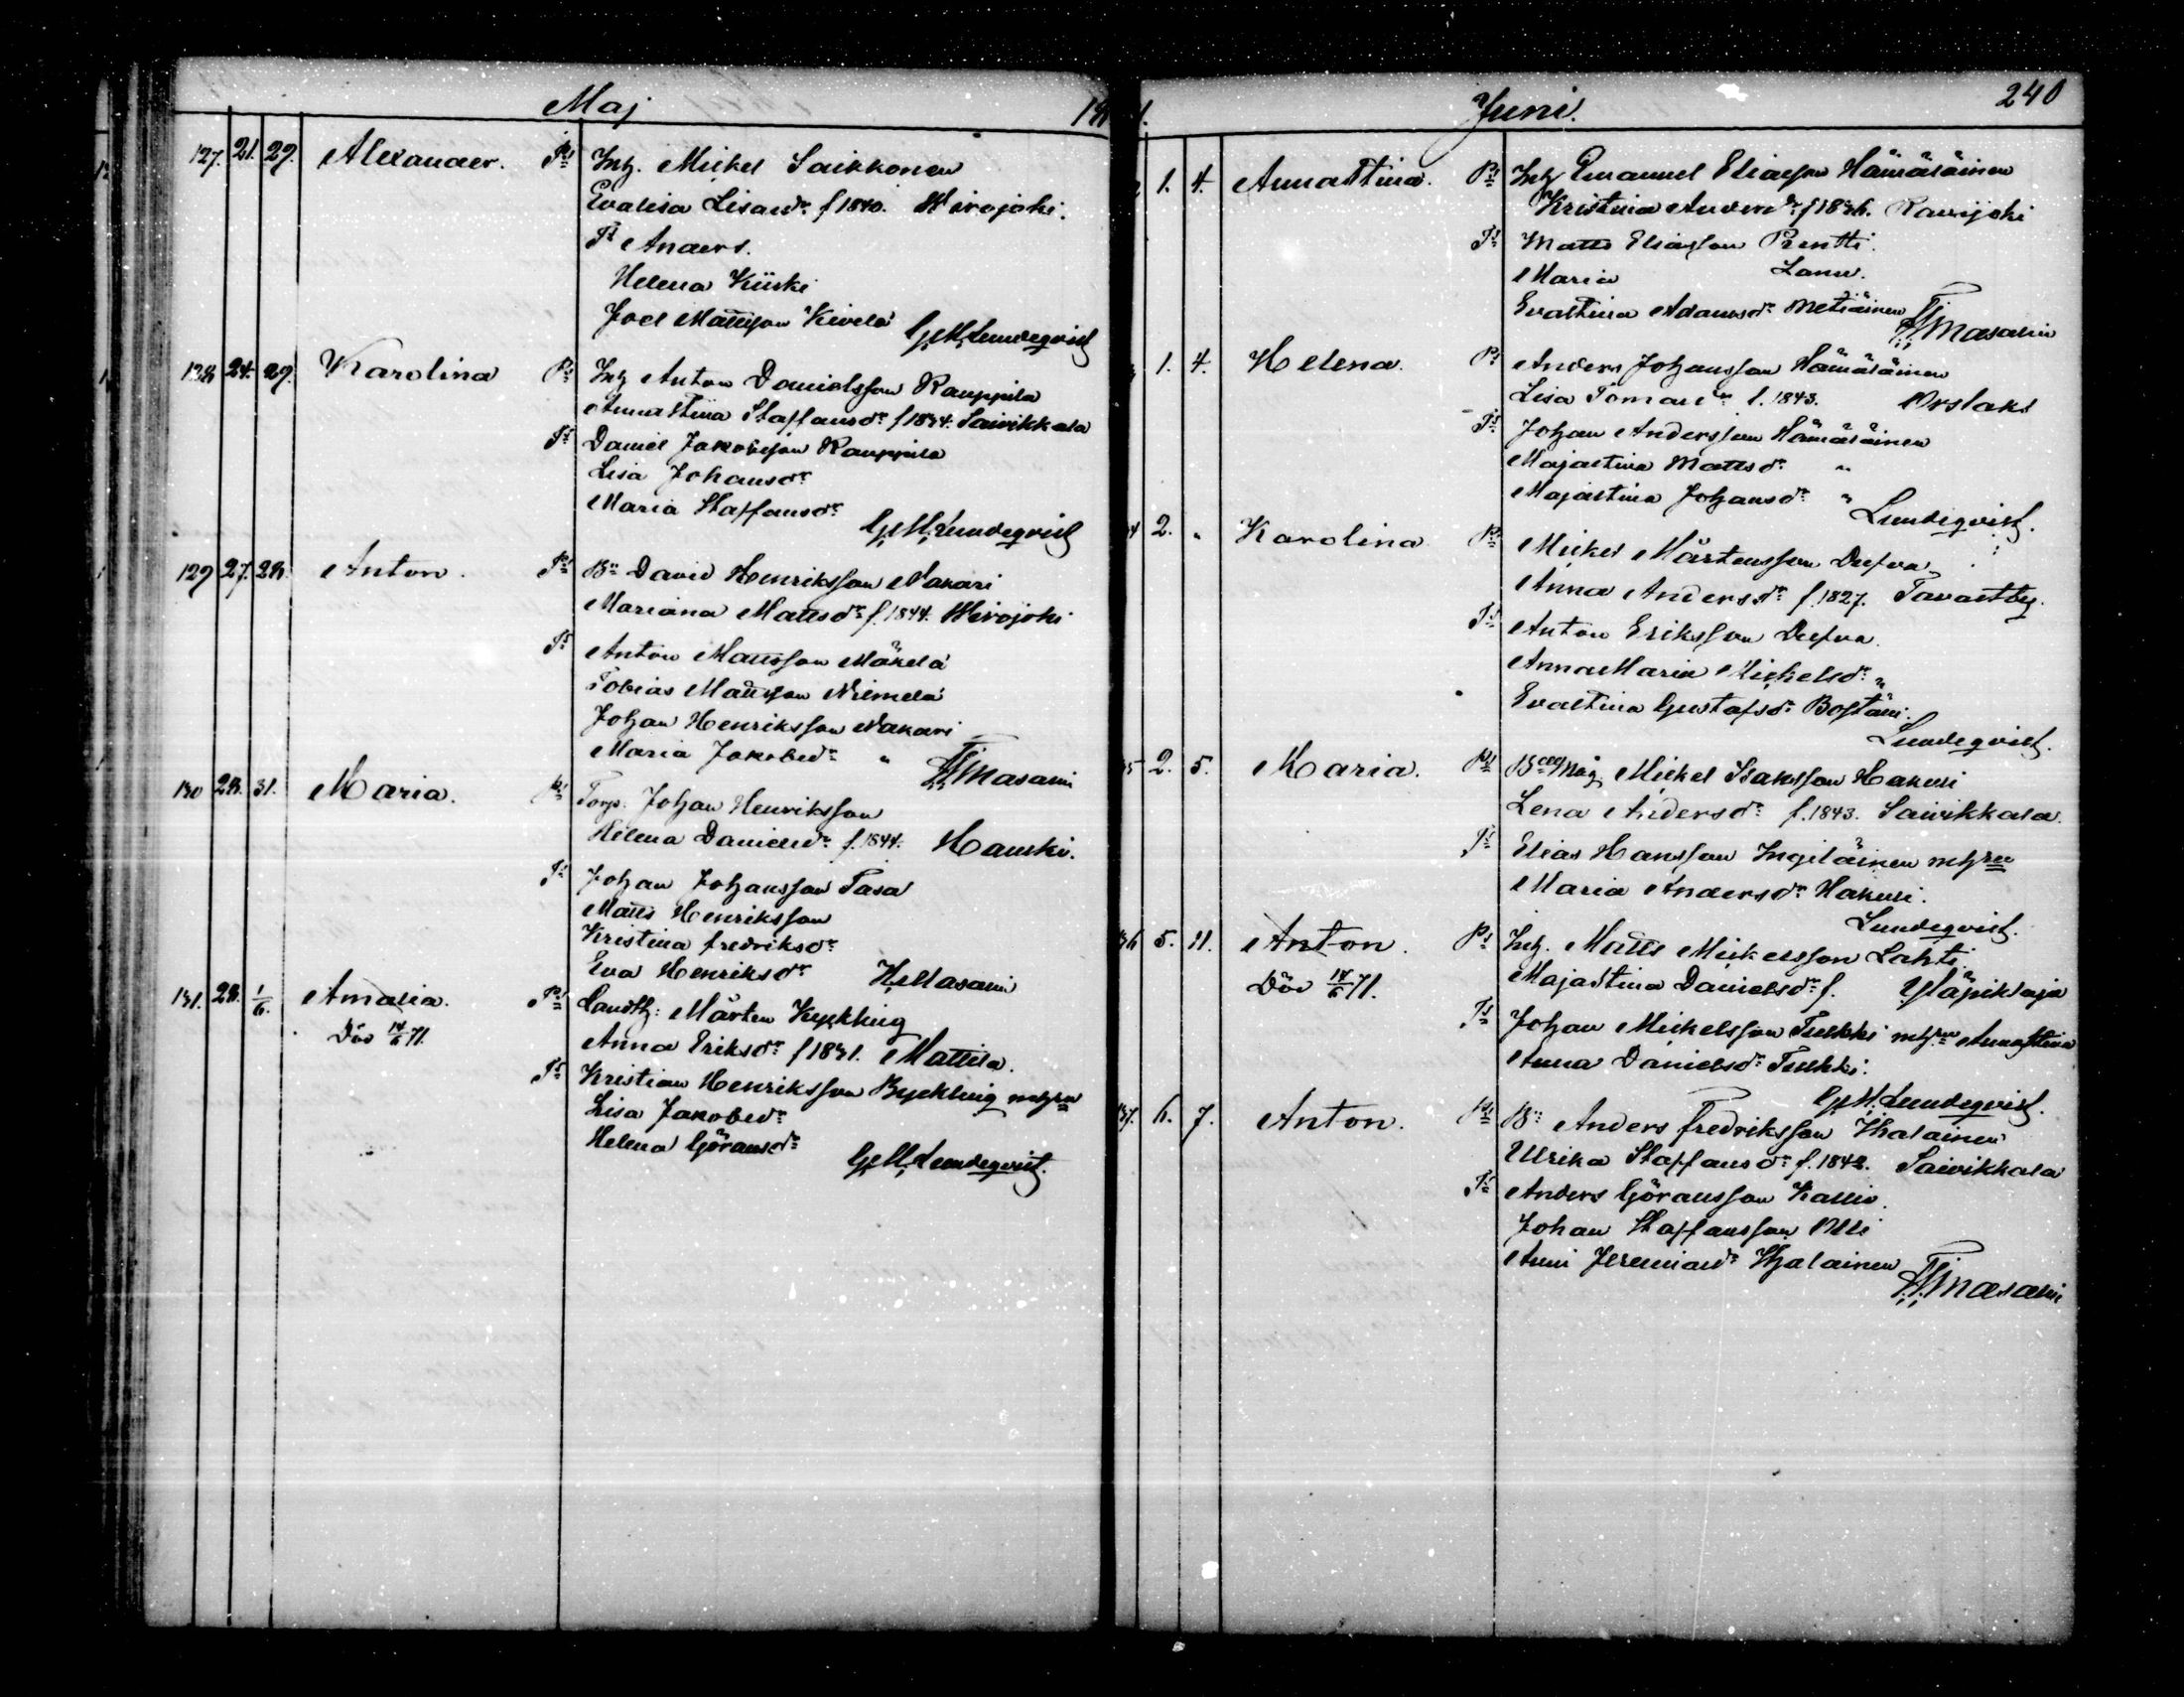 Maj
127. 21. 29. Alexander. Inh. Mickel Saikkonen
Evalisa Lisand:r f 1840. Wirojoki.
Anders.
Helena Kiiski
Joel Mattsson Kivelä G.M.Lundeqvist
128 24. 29. Karolina Inh Anton Danielsson Rauppila
Annastina Staffansd:r f 1834. Saivikkala
Daniel Jakobsson Rauppila
Lisa Johansd:r
Maria Staffansd:r
G.M.Lundeqvist
129 27. 28. Anton. B:n David Henriksson Nakari
Mariana Mattsd:r f. 1844. Wirojoki
Anton Mattsson Mäkelä
Tobias Mattsson Niemelä
Johan Henriksson Nakari
Maria Jakobsd:r " Masalin
130 28. 31. Maria. Torp. Johan Henriksson
Helena Danielsd:r f. 1844. Hanski.
Johan Johansson Tasa
Matts Henriksson
Kristina Fredriksd:r
Eva Henriksd:r Masalin
131. 28. 1/6. Amalia. Landth: Mårten Kyckling
Död 14/6 71. Anna Eriksd:r f 1831. Mattila.
Kristian Henriksson Byckling
Lisa Jakobsd:r
Helena Göransd:r
G.M.Lundeqvist.
Juni. 240
1. 4. Annastina. Inh Emanuel Eliasson Hämäläinen
Kristina Andersd:r f 1836. Ravijoki
Matts Eliasson Prentti.
Maria
Evastina Adamsd:r Metiäinen
Masalin
1. 4. Helena. Anders Johansson Hämäläinen
Lisa Tomasd:r f. 1843. Orslaks
Johan Andersson Hämäläinen
Majastina Mattsd:r "
Majastina Johansd:r "
Lundeqvist.
2. " Karolina Mickel Mårtensson
Anna Andersd:r f. 1827. Tavastby.
Anton Eriksson
Anna Maria Mickelsd:r "
Evastina Gustafsd:r
Lundeqvist.
2. 5. Maria. Måg Mickel Isaksson Hakuri
Lena Andersd:r f. 1843. Saivikkala.
Elias Hansson Ingiläinen
Maria Andersd:r Hakuri.
Lundeqvist.
136 5. 11. Anton. Inh. Matts Mickelsson Lahti
Död 14/6 71. Majastina Danielsd:r f. Yläpihlaja
Johan Mickelsson Tulkki Annastina
Anna Danielsd:r Tulkki.
G.M.Lundeqvist.
137. 6. 7. Anton. B:n Anders Fredriksson Ihalainen
Ulrika Staffansd:r f. 1842. Saivikkala
Anders Göransson Kallio.
Johan Staffansson Olli
Anni Jeremiasd:r Ihalainen
Masalin